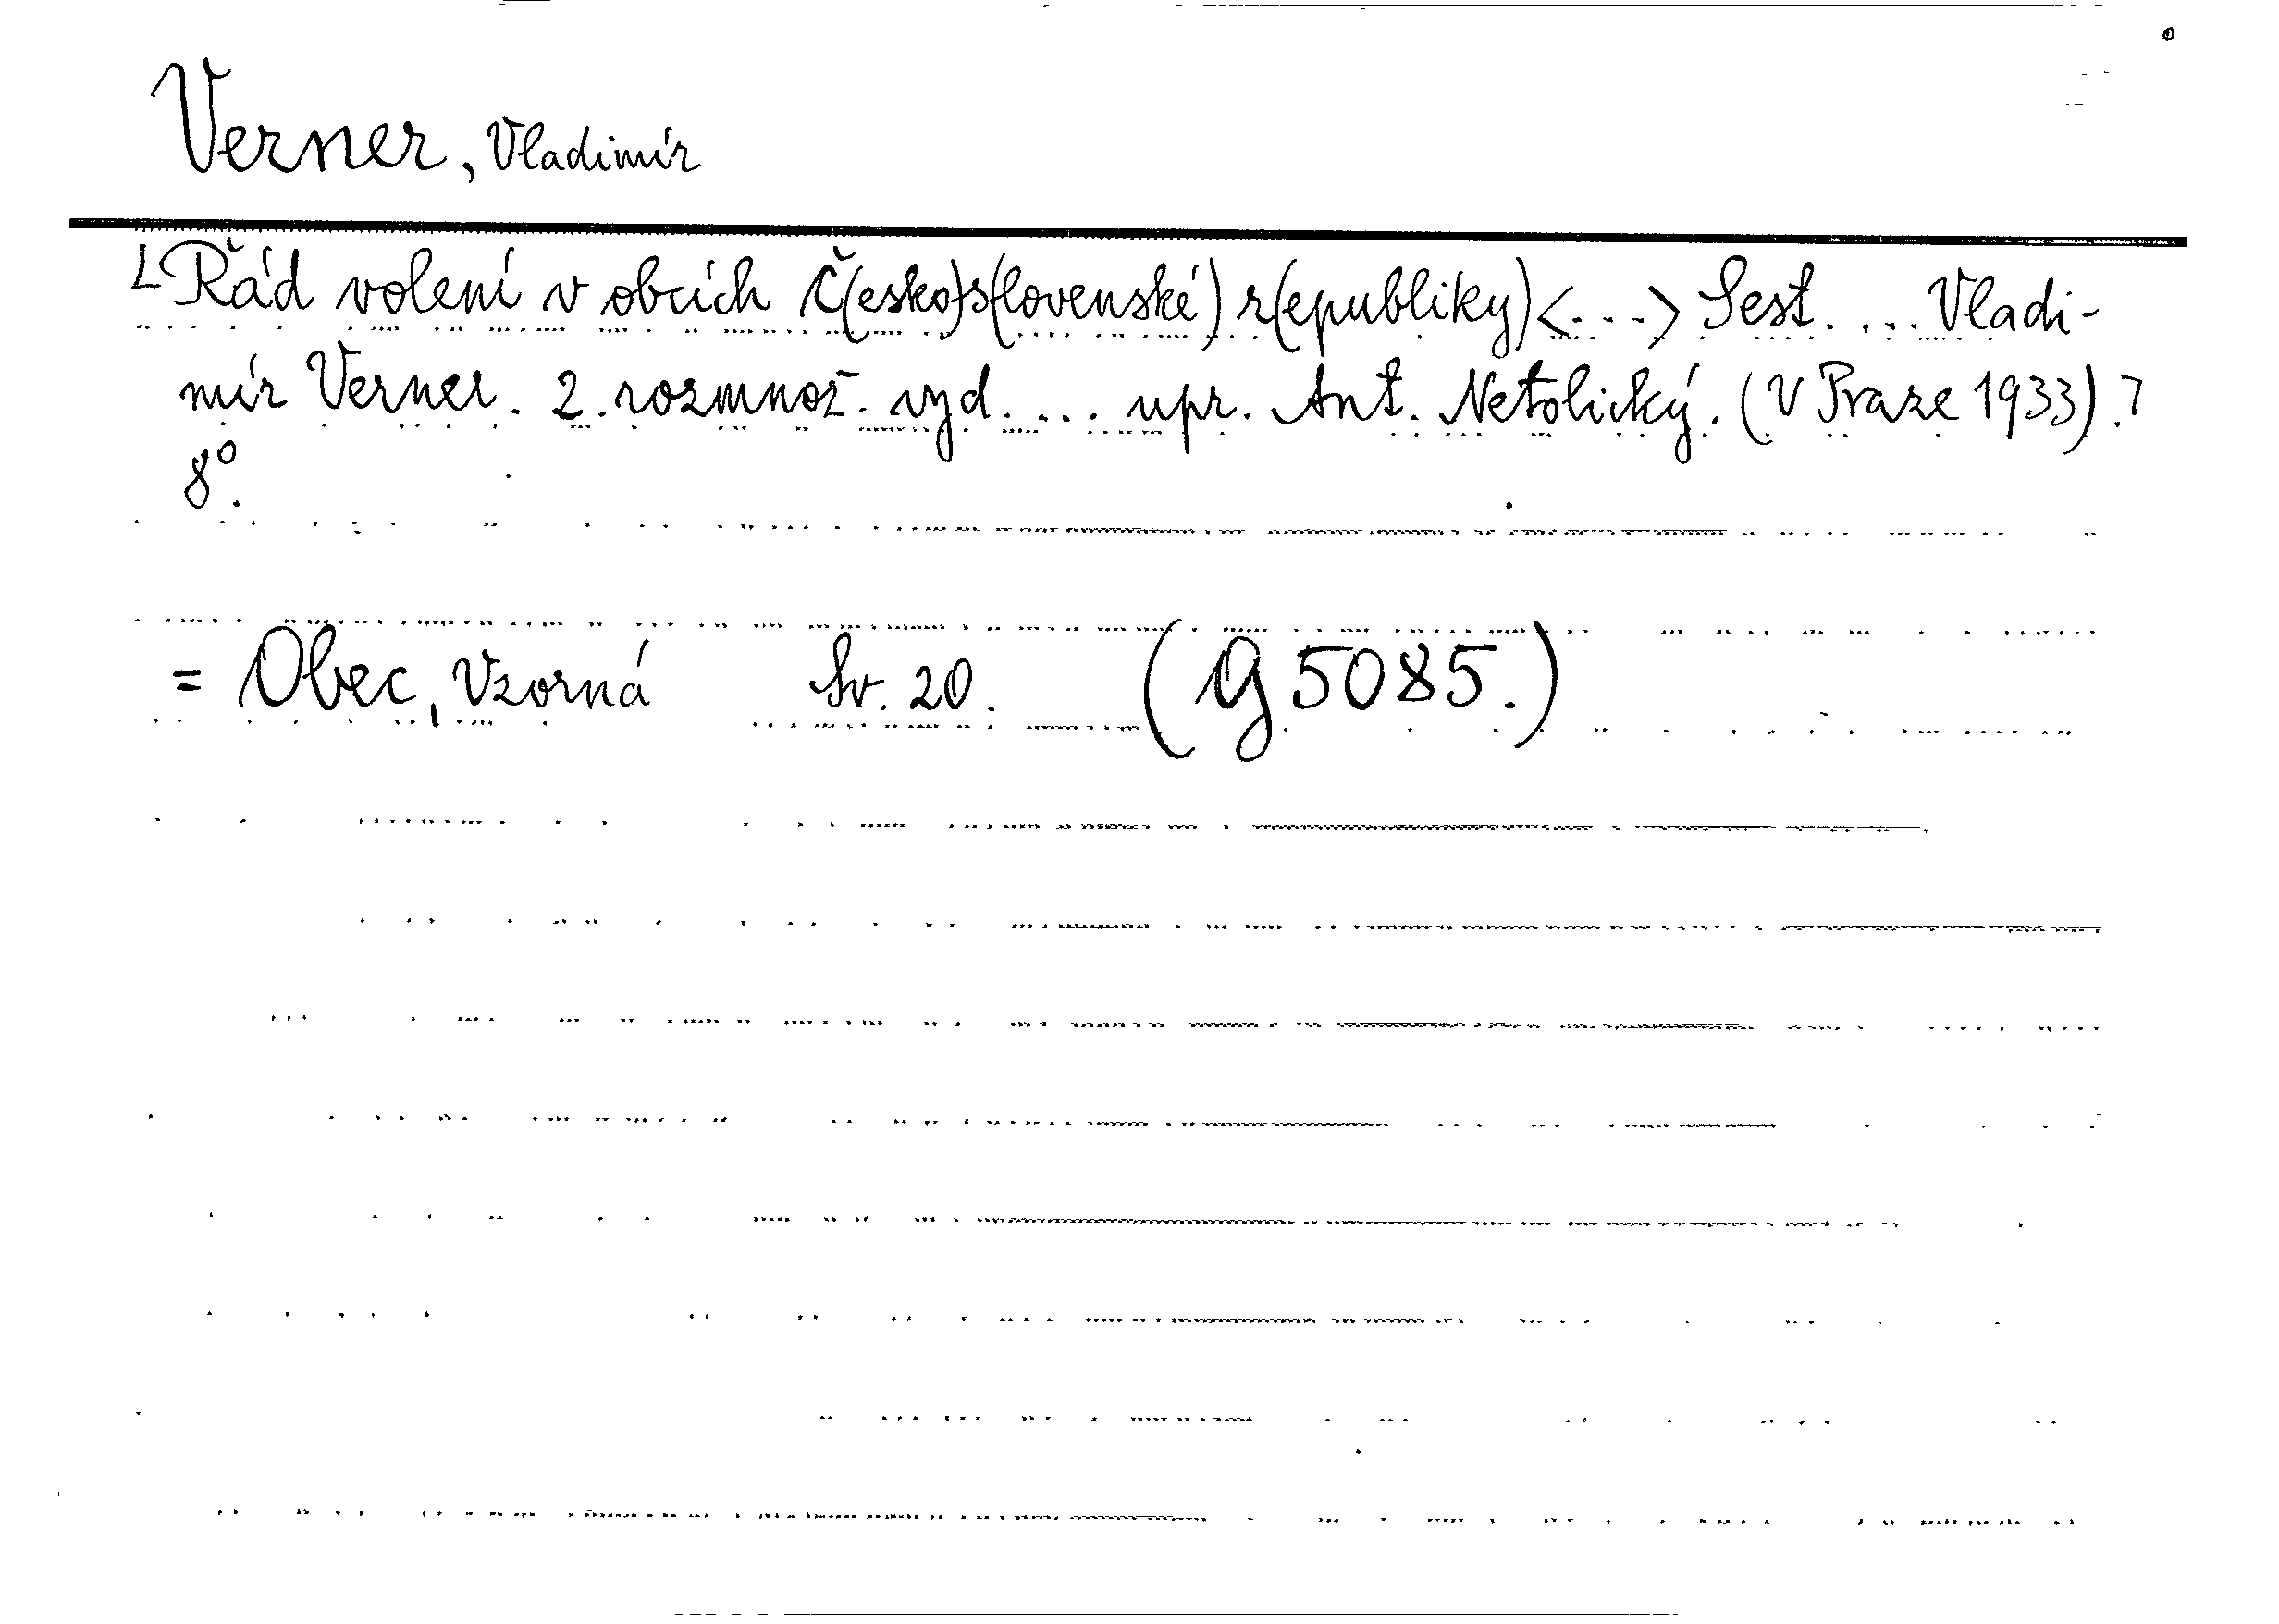 Verner, Vladimír
⌊Řád volení v obcích Č(esko)s(lovenské) r(epubliky)<...> Sest. ... Vladi-
mír Verner. 2. rozmnož. vyd. ... upr. Ant. Netolický. (V Praze 1933).⌉
8°.
= Obec, Vzorná Sv. 20. (G 5085.)